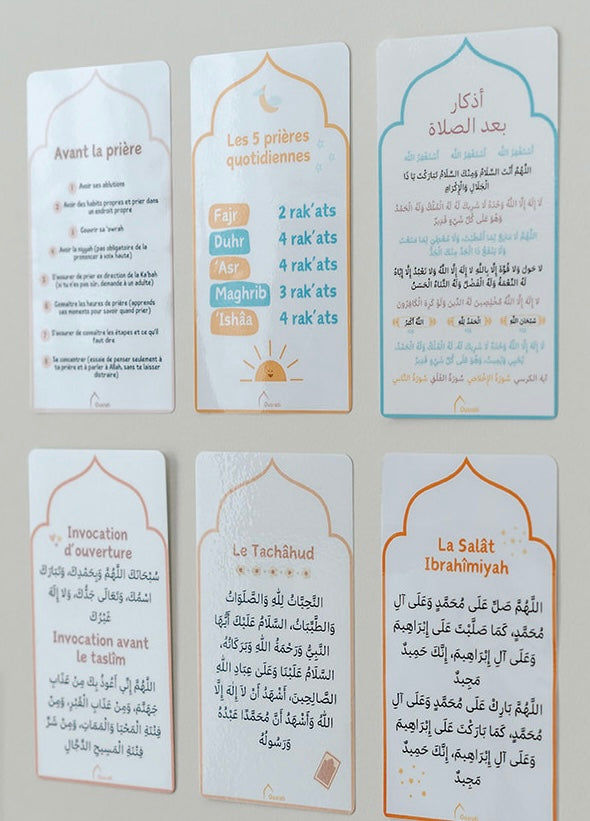 Avant la prière
1 Avoir ses ablutions
2 Avoir des habits propres et prier dans
un endroit propre
3 Couvrir sa 'awrah
4 Avoir la niyyah (pas obligatoire de la
prononcer à voix haute)
5 S'assurer de prier en direction de la Ka'bah
(si tu n'es pas sûr, demande à un adulte)
6 Connaître les heures de prière (apprends
ses moments pour savoir quand prier)
7 S'assurer de connaître les étapes et ce qu'il
faut dire
8 Se concentrer (essaie de penser seulement à
ta prière et à parler à Allah, sans te laisser
distraire)
Ousrati
Les 5 prières
quotidiennes
Fajr 2 rak'ats
Duhr 4 rak'ats
'Asr 4 rak'ats
Maghrib 3 rak'ats
'Ishâa 4 rak'ats
Ousrati
أذكار
بعد الصلاة
أَسْتَغْفِرُ اللَّهَ أَسْتَغْفِرُ اللَّهَ أَسْتَغْفِرُ اللَّهَ
اللَّهُمَّ أَنْتَ السَّلَامُ وَمِنْكَ السَّلَامُ تَبَارَكْتَ يَا ذَا
الْجَلَالِ وَالْإِكْرَامِ
لَا إِلَهَ إِلَّا اللَّهُ وَحْدَهُ لَا شَرِيكَ لَهُ لَهُ الْمُلْكُ وَلَهُ الْحَمْدُ
وَهُوَ عَلَى كُلِّ شَيْءٍ قَدِيرٌ
اللَّهُمَّ لَا مَانِعَ لِمَا أَعْطَيْتَ، وَلَا مُعْطِيَ لِمَا مَنَعْتَ
وَلَا يَنْفَعُ ذَا الْجَدِّ مِنْكَ الْجَدُّ
لَا حَوْلَ وَلَا قُوَّةَ إِلَّا بِاللَّهِ لَا إِلَهَ إِلَّا اللَّهُ وَلَا نَعْبُدُ إِلَّا إِيَّاهُ
لَهُ النِّعْمَةُ وَلَهُ الْفَضْلُ وَلَهُ الثَّنَاءُ الْحَسَنُ
لَا إِلَهَ إِلَّا اللَّهُ مُخْلِصِينَ لَهُ الدِّينَ وَلَوْ كَرِهَ الْكَافِرُونَ
سُبْحَانَ اللَّهِ الْحَمْدُ لِلَّهِ اللَّهُ أَكْبَرُ
لَا إِلَهَ إِلَّا اللَّهُ وَحْدَهُ لَا شَرِيكَ لَهُ، لَهُ الْمُلْكُ وَلَهُ الْحَمْدُ،
يُحْيِي وَيُمِيتُ، وَهُوَ عَلَى كُلِّ شَيْءٍ قَدِيرٌ
آية الكرسي سُورَةُ الإِخْلَاصِ سُورَةُ الْفَلَقِ سُورَةُ النَّاسِ
Ousrati
Invocation
d'ouverture
سُبْحَانَكَ اللَّهُمَّ وَبِحَمْدِكَ، وَتَبَارَكَ
اسْمُكَ، وَتَعَالَى جَدُّكَ، وَلَا إِلَهَ
غَيْرُكَ
Invocation avant
le taslîm
اللَّهُمَّ إِنِّي أَعُوذُ بِكَ مِنْ عَذَابِ
جَهَنَّمَ، وَمِنْ عَذَابِ الْقَبْرِ، وَمِنْ
فِتْنَةِ الْمَحْيَا وَالْمَمَاتِ، وَمِنْ شَرِّ
فِتْنَةِ الْمَسِيحِ الدَّجَّالِ
Ousrati
Le Tachâhud
التَّحِيَّاتُ لِلَّهِ وَالصَّلَوَاتُ
وَالطَّيِّبَاتُ، السَّلَامُ عَلَيْكَ أَيُّهَا
النَّبِيُّ وَرَحْمَةُ اللَّهِ وَبَرَكَاتُهُ،
السَّلَامُ عَلَيْنَا وَعَلَى عِبَادِ اللَّهِ
الصَّالِحِينَ، أَشْهَدُ أَنْ لَا إِلَهَ إِلَّا
اللَّهُ وَأَشْهَدُ أَنَّ مُحَمَّدًا عَبْدُهُ
وَرَسُولُهُ
Ousrati
La Salât
Ibrahîmiyah
اللَّهُمَّ صَلِّ عَلَى مُحَمَّدٍ وَعَلَى آلِ
مُحَمَّدٍ، كَمَا صَلَّيْتَ عَلَى إِبْرَاهِيمَ
وَعَلَى آلِ إِبْرَاهِيمَ، إِنَّكَ حَمِيدٌ
مَجِيدٌ
اللَّهُمَّ بَارِكْ عَلَى مُحَمَّدٍ وَعَلَى آلِ
مُحَمَّدٍ، كَمَا بَارَكْتَ عَلَى إِبْرَاهِيمَ
وَعَلَى آلِ إِبْرَاهِيمَ، إِنَّكَ حَمِيدٌ
مَجِيدٌ
Ousrati